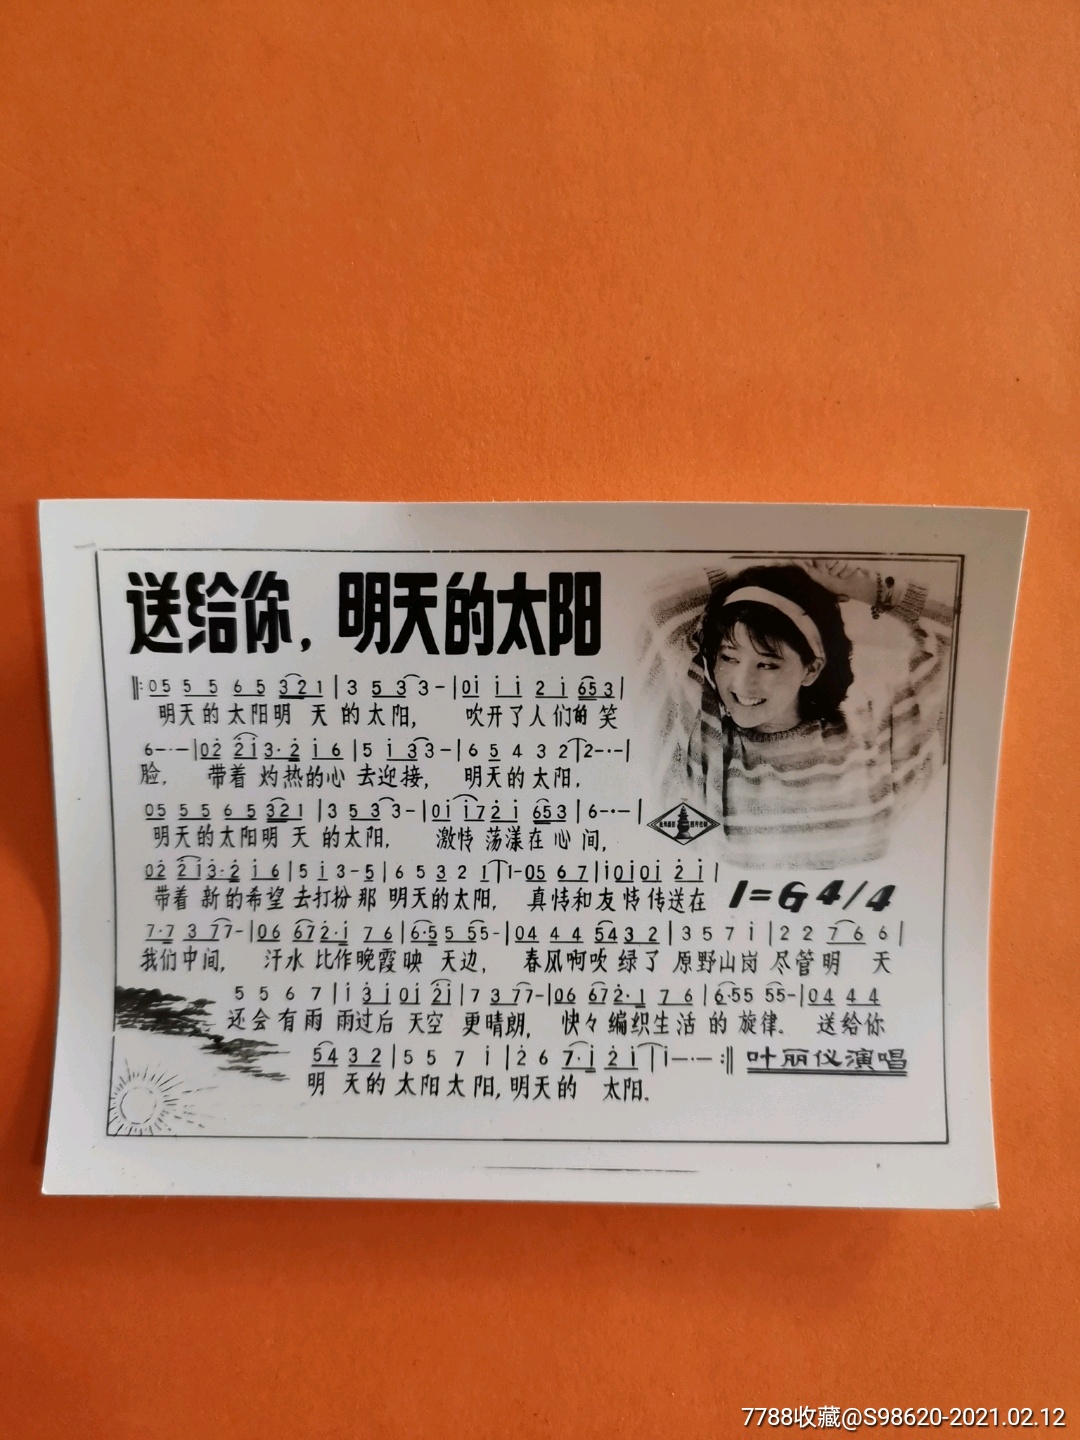 送给你，明天的太阳
‖: 05 5 5 6 5 321 | 3 5 3 3 - | 0i i i 2 i 653 |
明天的太阳明 天 的太阳， 吹开了人们的 笑
6-·- | 02 2i3·2 i 6 | 5 i 33 - | 6 5 4 3 2 | 2-·- |
脸， 带着 灼热的心 去迎接， 明天的太阳，
05 5 5 6 5 321 | 3 5 3 3 - | 0i i72 i 653 | 6-·- |
明天的太阳明 天 的太阳， 激情 荡漾在 心 间，
02 2i3·2 i 6 | 5 i 3-5 | 6 5 3 2 1 | 1-05 6 7 | i0i0i 2 i |
带着 新的希望 去打扮 那 明天的太阳， 真情和友 情 传送在
1=G 4/4
7·7 3 77- | 06 672·i 7 6 | 6·5 5 55- | 04 4 4 54 3 2 | 3 5 7 i | 2 2 7 6 6 |
我们中间， 汗水 比作晚霞映 天边， 春风啊吹 绿了 原野山岗 尽管明 天
5 5 6 7 | i 3 i 0i 2i | 7 3 77- | 06 672·1 7 6 | 6·55 55- | 04 4 4
还会有雨 雨过后 天空 更晴朗， 快々 编织生活 的 旋律． 送给你
54 3 2 | 5 5 7 i | 2 6 7·i 2 i | i-·- :‖ 叶丽仪演唱
明 天的 太阳太阳，明天的 太阳．
7788收藏@S98620-2021.02.12